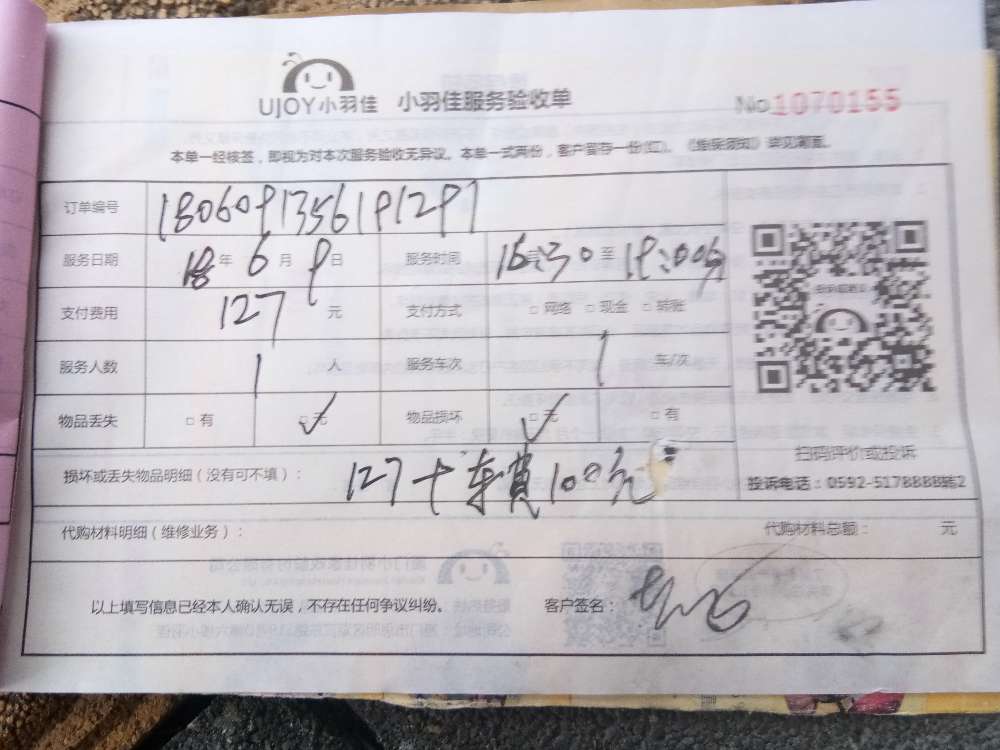 UJOY小羽佳 小羽佳服务验收单 No 1070155
本单一经核签，即视为对本次服务验收无异议。本单一式两份，客户留存一份(红)。《维保须知》详见背面。
订单编号 1806091356191291
服务日期 18年6月9日 服务时间 16:30至19:00分
支付费用 127元 支付方式 □网络 □现金 □转账
服务人数 1人 服务车次 1车/次
物品丢失 □有 □无✓ 物品损坏 □无✓ □有
扫码评价或投诉
损坏或丢失物品明细（没有可不填）： 127+车费100元
投诉电话：0592-5178888转2
代购材料明细（维修业务）： 代购材料总额： 元
以上填写信息已经本人确认无误，不存在任何争议纠纷。 客户签名：